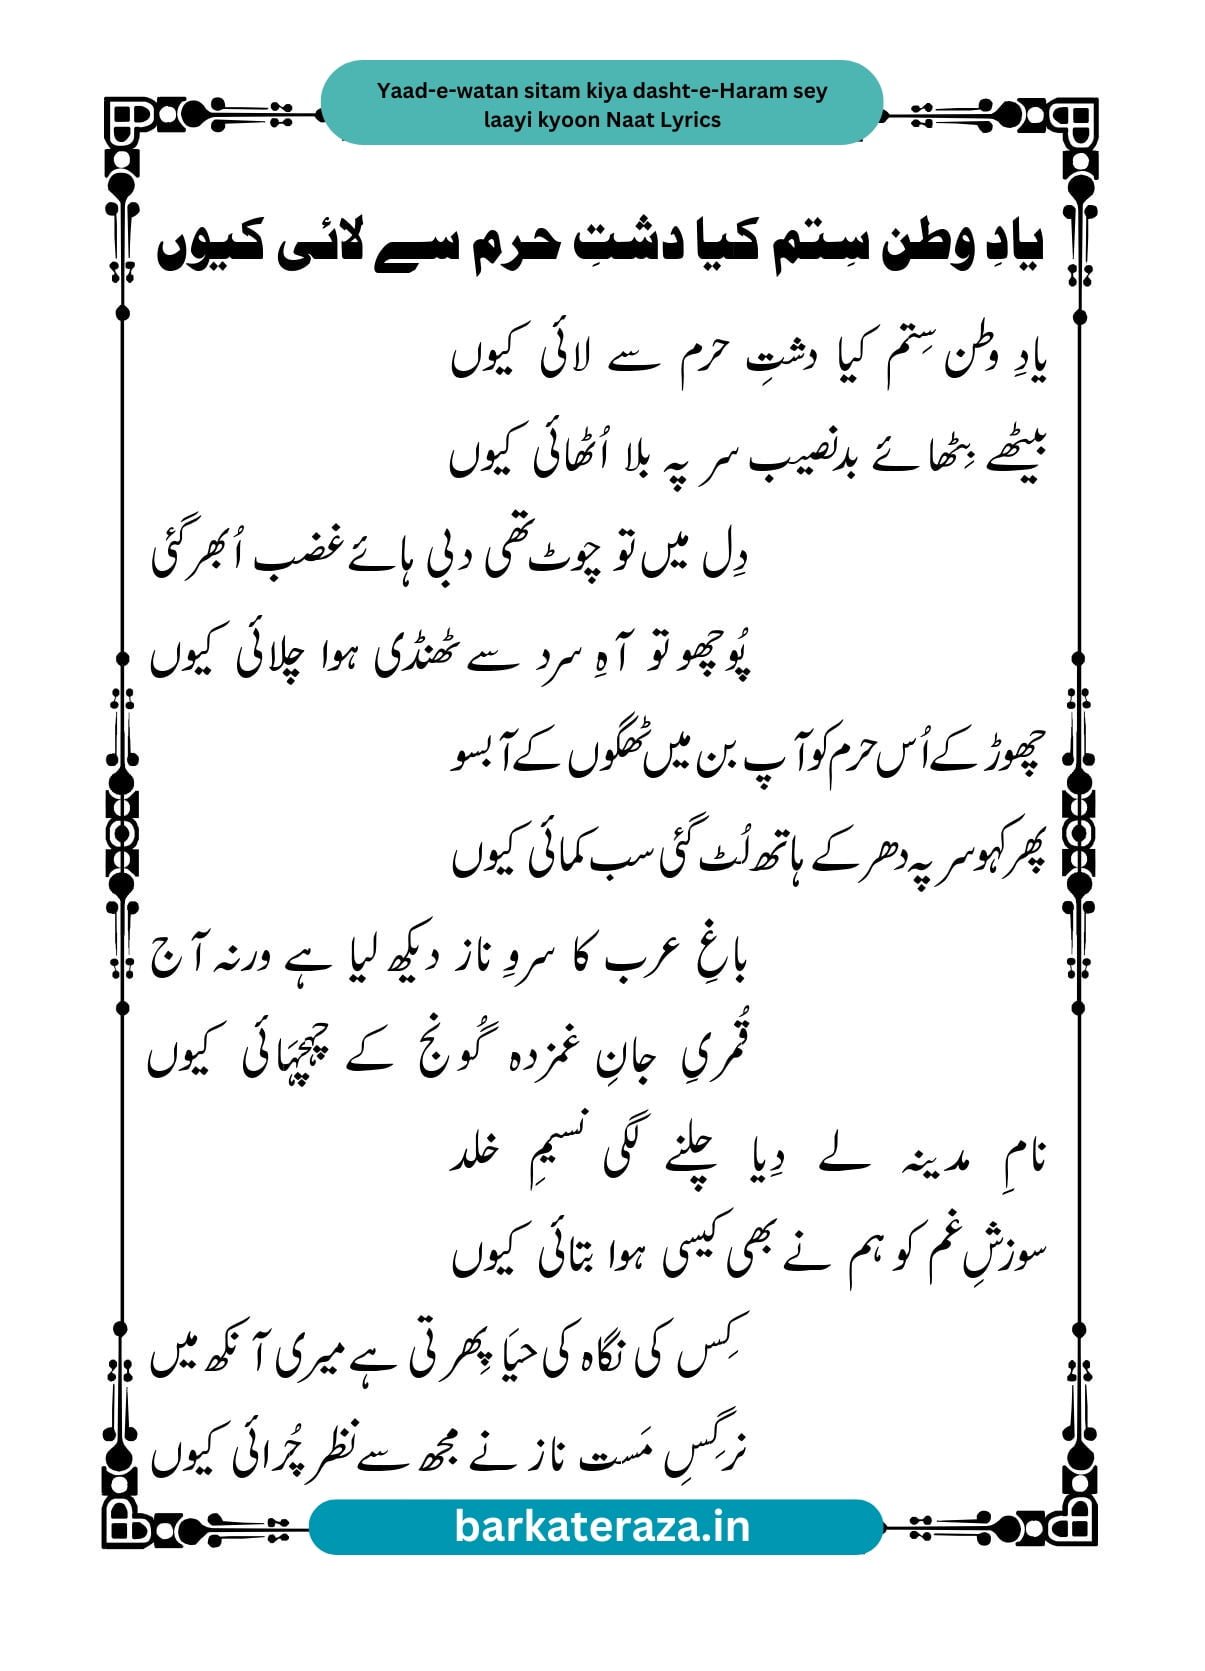 Yaad-e-watan sitam kiya dasht-e-Haram sey
laayi kyoon Naat Lyrics
یادِ وطن سِتم کیا دشتِ حرم سے لائی کیوں
یادِ وطن سِتم کیا دشتِ حرم سے لائی کیوں
بیٹھے بِٹھائے بدنصیب سر پہ بلا اُٹھائی کیوں
دِل میں تو چوٹ تھی دبی ہائے غضب اُبھر گئی
پُوچھو تو آہِ سرد سے ٹھنڈی ہوا چلائی کیوں
چھوڑ کے اُس حرم کو آپ بن میں ٹھگوں کے آ بسو
پھر کہو سر پہ دھر کے ہاتھ لُٹ گئی سب کمائی کیوں
باغِ عرب کا سروِ ناز دیکھ لیا ہے ورنہ آج
قُمریِ جانِ غمزدہ گُونج کے چہچہَائی کیوں
نامِ مدینہ لے دِیا چلنے لگی نسیمِ خلد
سوزشِ غم کو ہم نے بھی کیسی ہوا بتائی کیوں
کِس کی نگاہ کی حیَا پِھرتی ہے میری آنکھ میں
نرگِسِ مَست ناز نے مجھ سے نظر چُرائی کیوں
barkateraza.in